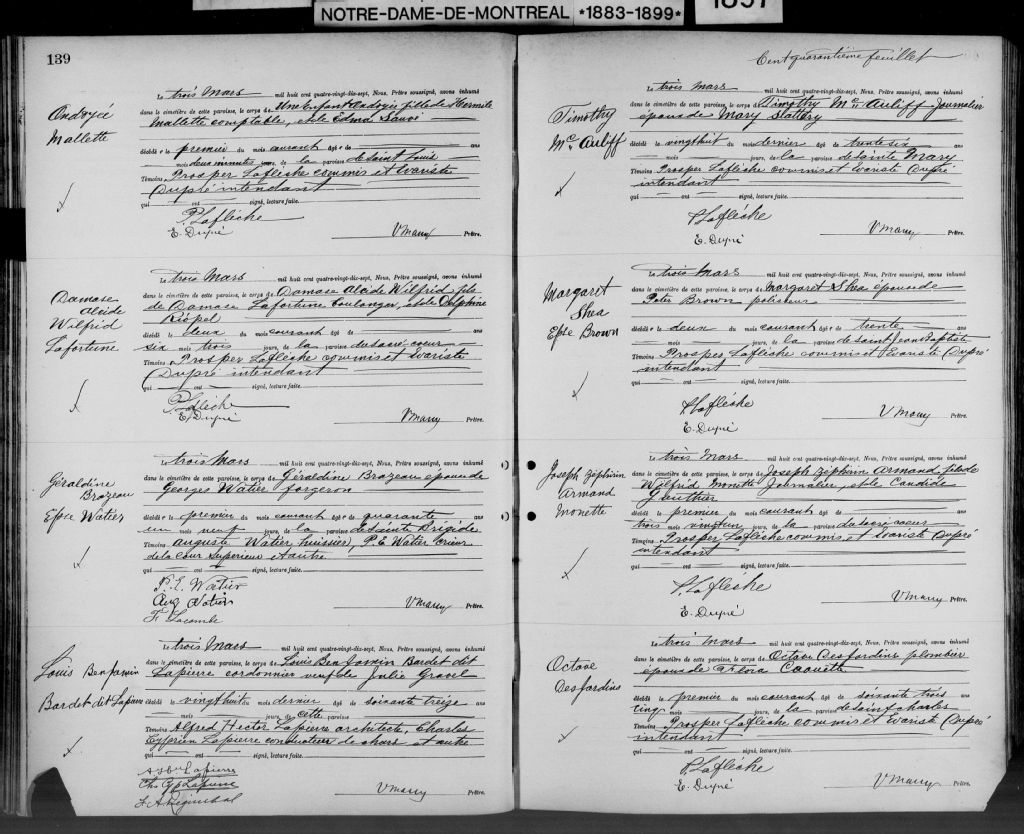 NOTRE-DAME-DE-MONTREAL *1883-1899*
1897
139
Ondoyée
Mallette
Le trois Mars mil huit cent quatre-vingt-dix-sept, Nous, Prêtre soussigné, avons inhumé
dans le cimetière de cette paroisse, le corps d'Une Enfant Ondoyée fille de Hermile
Mallette comptable, et de Edma Sauvé
décédée le premier du mois courant âgée de ans
mois deux minutes jours, de la paroisse de Saint Louis
Témoins Prosper Laflèche commis et Evariste
Dupré intendant
qui ont signé, lecture faite.
P. Laflèche
E. Dupré
V Marry Prêtre.
Damase
Alcide
Wilfrid
Lafortune
Le trois Mars mil huit cent quatre-vingt-dix-sept, Nous, Prêtre soussigné, avons inhumé
dans le cimetière de cette paroisse, le corps de Damase Alcide Wilfrid fils
de Damase Lafortune boulanger, et de Delphine
Riopel
décédé le deux du mois courant âgé de ans
six mois trois jours, de la paroisse du sacré coeur
Témoins Prosper Laflèche commis et Evariste
Dupré intendant
qui ont signé, lecture faite.
P. Laflèche
E. Dupré
V Marry Prêtre.
Géraldine
Brazeau
Epse Watier
Le trois Mars mil huit cent quatre-vingt-dix-sept, Nous, Prêtre soussigné, avons inhumé
dans le cimetière de cette paroisse, le corps de Géraldine Brazeau épouse de
Georges Watier forgeron
décédée le premier du mois courant âgée de quarante ans
un mois neuf jours, de la paroisse de Sainte Brigide
Témoins Auguste Watier huissier, P. E. Watier crieur
de la cour Supérieure et autre
qui ont signé, lecture faite.
P. E. Watier
Aug Watier
F. Lacombe
V Marry Prêtre.
Louis Benjamin
Bardet dit Lapierre
Le trois Mars mil huit cent quatre-vingt-dix-sept, Nous, Prêtre soussigné, avons inhumé
dans le cimetière de cette paroisse, le corps de Louis Benjamin Bardet dit
Lapierre cordonnier veuf de Julie Gravel
décédé le vingthuit du mois dernier âgé de soixante treize ans
mois jours, de cette paroisse
Témoins Alfred Hector Lapierre architecte, Charles
Cyprien Lapierre conducteur de chars et autre
qui ont signé, lecture faite.
Lapierre
Chs Cyp Lapierre
V Marry Prêtre.
Cent quarantième feuillet
Timothy
Mc Auliff
Le trois Mars mil huit cent quatre-vingt-dix-sept, Nous, Prêtre soussigné, avons inhumé
dans le cimetière de cette paroisse, le corps de Timothy Mc Auliff Journalier
époux de Mary Slattery
décédé le vingthuit du mois dernier âgé de trente six ans
mois jours, de la paroisse de Sainte Mary
Témoins Prosper Laflèche commis et Evariste Dupré
intendant
qui ont signé, lecture faite.
P. Laflèche
E. Dupré
V Marry Prêtre.
Margaret
Shea
Epse Brown
Le trois Mars mil huit cent quatre-vingt-dix-sept, Nous, Prêtre soussigné, avons inhumé
dans le cimetière de cette paroisse, le corps de Margaret Shea épouse de
Peter Brown polisseur
décédée le deux du mois courant âgée de trente ans
mois jours, de la paroisse de Saint Jean Baptiste
Témoins Prosper Laflèche commis et Evariste Dupré
intendant
qui ont signé, lecture faite.
P. Laflèche
E. Dupré
V Marry Prêtre.
Joseph Zéphirin
Armand
Monette
Le trois Mars mil huit cent quatre-vingt-dix-sept, Nous, Prêtre soussigné, avons inhumé
dans le cimetière de cette paroisse, le corps de Joseph Zéphirin Armand fils de
Wilfrid Monette Journalier, et de Candide
Gauthier
décédé le premier du mois courant âgé de ans
trois mois vingtun jours, de la paroisse du sacré coeur
Témoins Prosper Laflèche commis, et Evariste Dupré
intendant
qui ont signé, lecture faite.
P. Laflèche
E. Dupré
V Marry Prêtre.
Octave
Desjardins
Le trois Mars mil huit cent quatre-vingt-dix-sept, Nous, Prêtre soussigné, avons inhumé
dans le cimetière de cette paroisse, le corps de Octave Desjardins plombier
époux de Flora Caouette
décédé le premier du mois courant âgé de soixante trois ans
cinq mois jours, de la paroisse de Saint Charles
Témoins Prosper Laflèche commis et Evariste Dupré
intendant
qui ont signé, lecture faite.
P. Laflèche
E. Dupré
V Marry Prêtre.